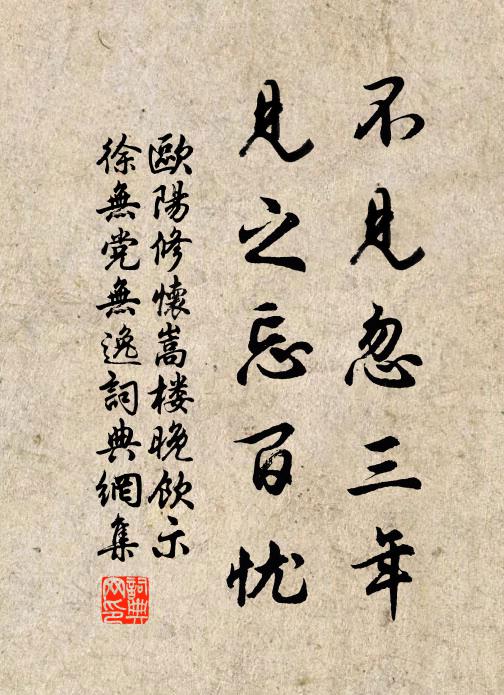 不见忽三年
见之忘百忧
歐陽修懷嵩楼晚飲示
徐無党無逸詞典網集
詞典網印